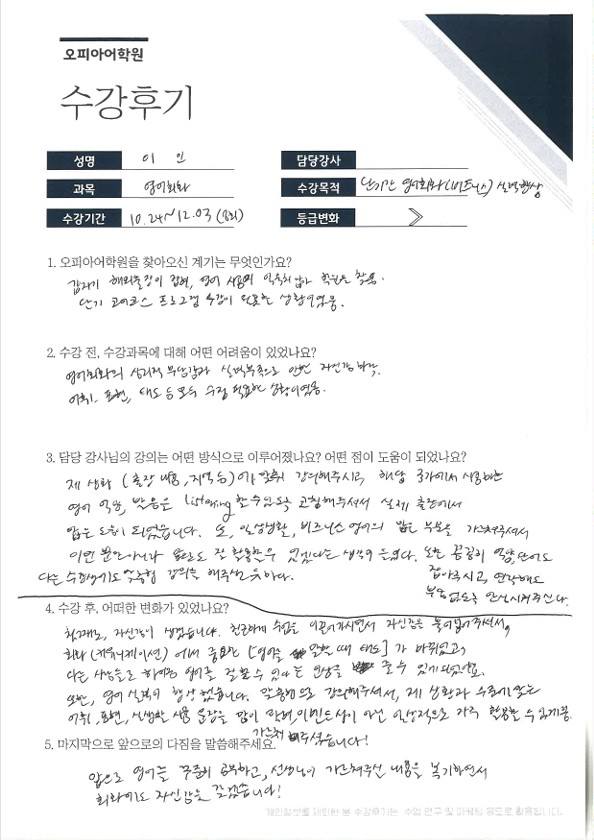 오피아어학원
수강후기
성명 이 인
담당강사
과목 영어회화
수강목적 단기간 영어회화(비즈니스) 실력향상
수강기간 10.24~12.03
등급변화
1. 오피아어학원을 찾아오신 계기는 무엇인가요?
갑자기 해외출장이 잡혀, 영어 학원을 찾음.
단기 코어코스 프로그램 수강이 필요한 상황이었음.
2. 수강 전, 수강과목에 대해 어떤 어려움이 있었나요?
영어회화의 심리적 부담감과 실력부족으로 인한 자신감 하락.
어휘, 표현, 태도 등 모두 수정 필요한 상황이었음.
3. 담당 강사님의 강의는 어떤 방식으로 이루어졌나요? 어떤 점이 도움이 되었나요?
제 상황 (출장 내용, 지역 등)에 맞춰 강의해주시고, 해당 국가에서 사용하는
영어 억양, 발음은 listening 할 수 있도록 교정해주셔서 실제 출장에서
많은 도움이 되었습니다. 또, 일상생활, 비즈니스 영어의 많은 부분을 가르쳐주셔서
이번 뿐만 아니라 앞으로도 잘 활용할 수 있겠다는 생각이 들었다. 또한 꼼꼼히 억양, 단어도
다른 수강생에게도 강의를 해주실 듯 하다. 잡아주시고, 연락해도
부담없도록 안심시켜주신다.
4. 수강 후, 어떠한 변화가 있었나요?
첫째로, 자신감이 생겼습니다. 친근하게 수업을 이끌어가시면서 자신감을 불어넣어주셔서,
회화(커뮤니케이션)에서 중요한 [영어를 말할 때 태도]가 바뀌었고,
다른 사람들로 하여금 영어를 잘할 수 있다는 인상을 줄 수 있게 되었어요.
또한, 영어 실력이 향상했습니다. 맞춤형으로 강의해주셔서, 제 상황과 수준에 맞는
어휘, 표현, 실생활 사용 문장을 많이 알려 이벤트성이 아닌 일상적으로 가족 활용할 수 있게끔
가르쳐 해주셨습니다!
5. 마지막으로 앞으로의 다짐을 말씀해주세요.
앞으로 영어를 꾸준히 공부하고, 선생님이 가르쳐주신 내용을 복기하면서
회화에도 자신감을 갖겠습니다!
개인정보를 제외한 본 수강후기는 수업 연구 및 마케팅 용도로 활용됩니다.